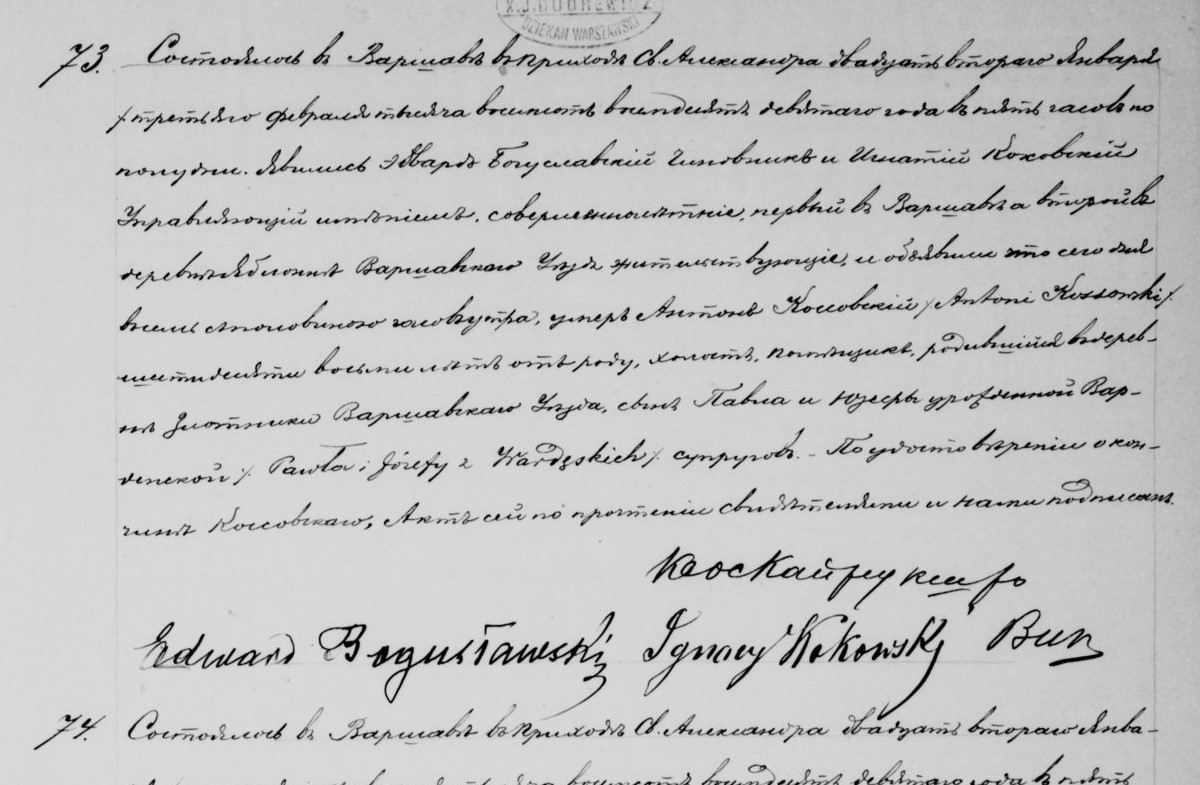 X.J.DUDREWICZ
DZIEKAN WARSZAWSKI
73. Состоялось въ Варшавѣ въ приходѣ Св. Александра двадцать втораго Января
/третьяго Февраля тысяча восемьсотъ восемьдесятъ девятаго года въ пять часовъ по
полудни. Явились Эдвардъ Богуславскій чиновникъ и Игнатій Коковскій
Управляющій имѣніемъ, совершеннолѣтніе, первый въ Варшавѣ а второй въ
деревнѣ Яблоннѣ Варшавскаго Уѣзда жительствующіе, и объявили что сего дня
въ семь съ половиною часовъ утра, умеръ Антонъ Коссовскій /Antoni Kossowski/.
шестидесяти восьми лѣтъ отъ роду, холостъ, помѣщикъ, родившійся въ дерев-
нѣ Злотники Варшавскаго Уѣзда, сынъ Павла и Юзефы урожденной Вар-
денской /. Pawła i Józefy z Wardęskich /. супруговъ. - По удостовѣреніи о кон-
чинѣ Коссовскаго, Актъ сей по прочтеніи свидѣтелями и нами подписанъ.
Edward Bogusławski Ignacy Kokowski
74. Состоялось въ Варшавѣ въ приходѣ Св. Александра двадцать втораго Янва-
восемьсотъ восемьдесятъ девятаго года въ пять